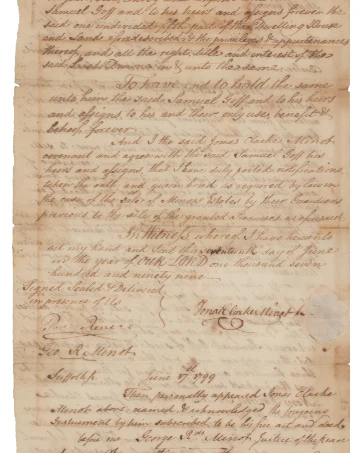 Samuel Goff and to his heirs and assigns forever the
said one undivided part of the Dwelling House
and Lands aforedescribed & the privileges & appurtenances
thereof, and all the right, title and interest of the
said in & unto the same.
To have and to hold the same
unto him the said Samuel Goff and to his heirs
and assigns, to his and their only use, benefit &
behoof forever.
And I the said Jonas Clarke Minot
covenant and agree with the said Samuel Goff his
heirs and assigns, that I have duly posted notifications,
taken the oath and given bond as required by law in
the case of the sale of Minors Estates by their Guardians
previous to the sale of the granted Premises as aforesaid.
In Witness whereof I have hereunto
set my hand and Seal this seventeenth day of June
in the year of OUR LORD one thousand seven
hundred and ninety nine
Signed Sealed & Delivered
in presence of Us
Jonas Clarke Minot
Paul Revere
Geo. R. Minot
Suffolk ss. June 17th 1799
Then personally appeared Jonas Clarke
Minot above named & acknowledged the foregoing
Instrument by him subscribed to be his free act and deed
before me George Rds. Minot Justice of the Peace